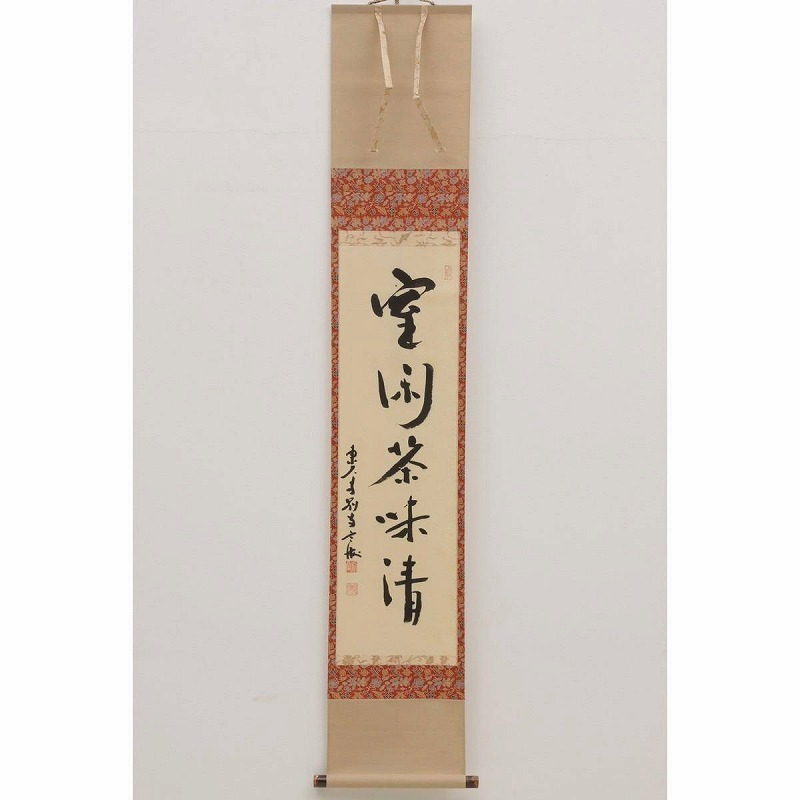 室閑茶味清
東大寺別当